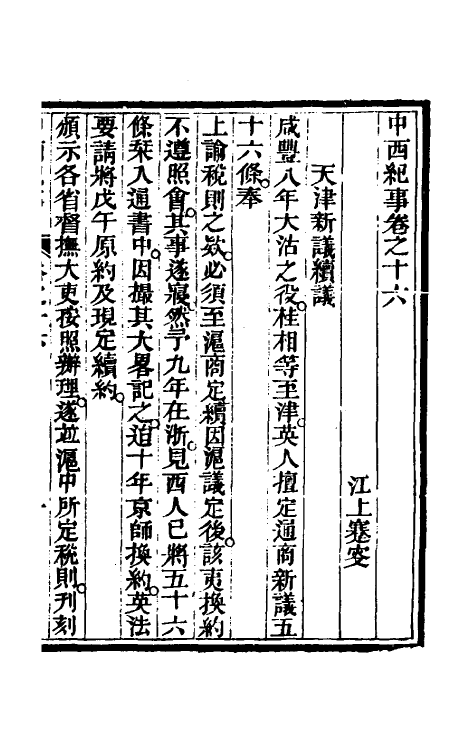 中西紀事卷之十六
江上蹇叟
天津新議續議
咸豐八年大沽之役。桂相等至津。英人擅定通商新議五
十六條。奉
上諭稅則之欵。必須至滬商定。續因滬議定後。該夷換約
不遵照會。其事遂寢。然予九年在浙。見西人已將五十六
條栞入通書中。因撮其大畧記之。迨十年京師換約。英法
要請將戊午原約及現定續約。
頒示各省督撫大吏按照辦理。遂並滬中所定稅則。刋刻